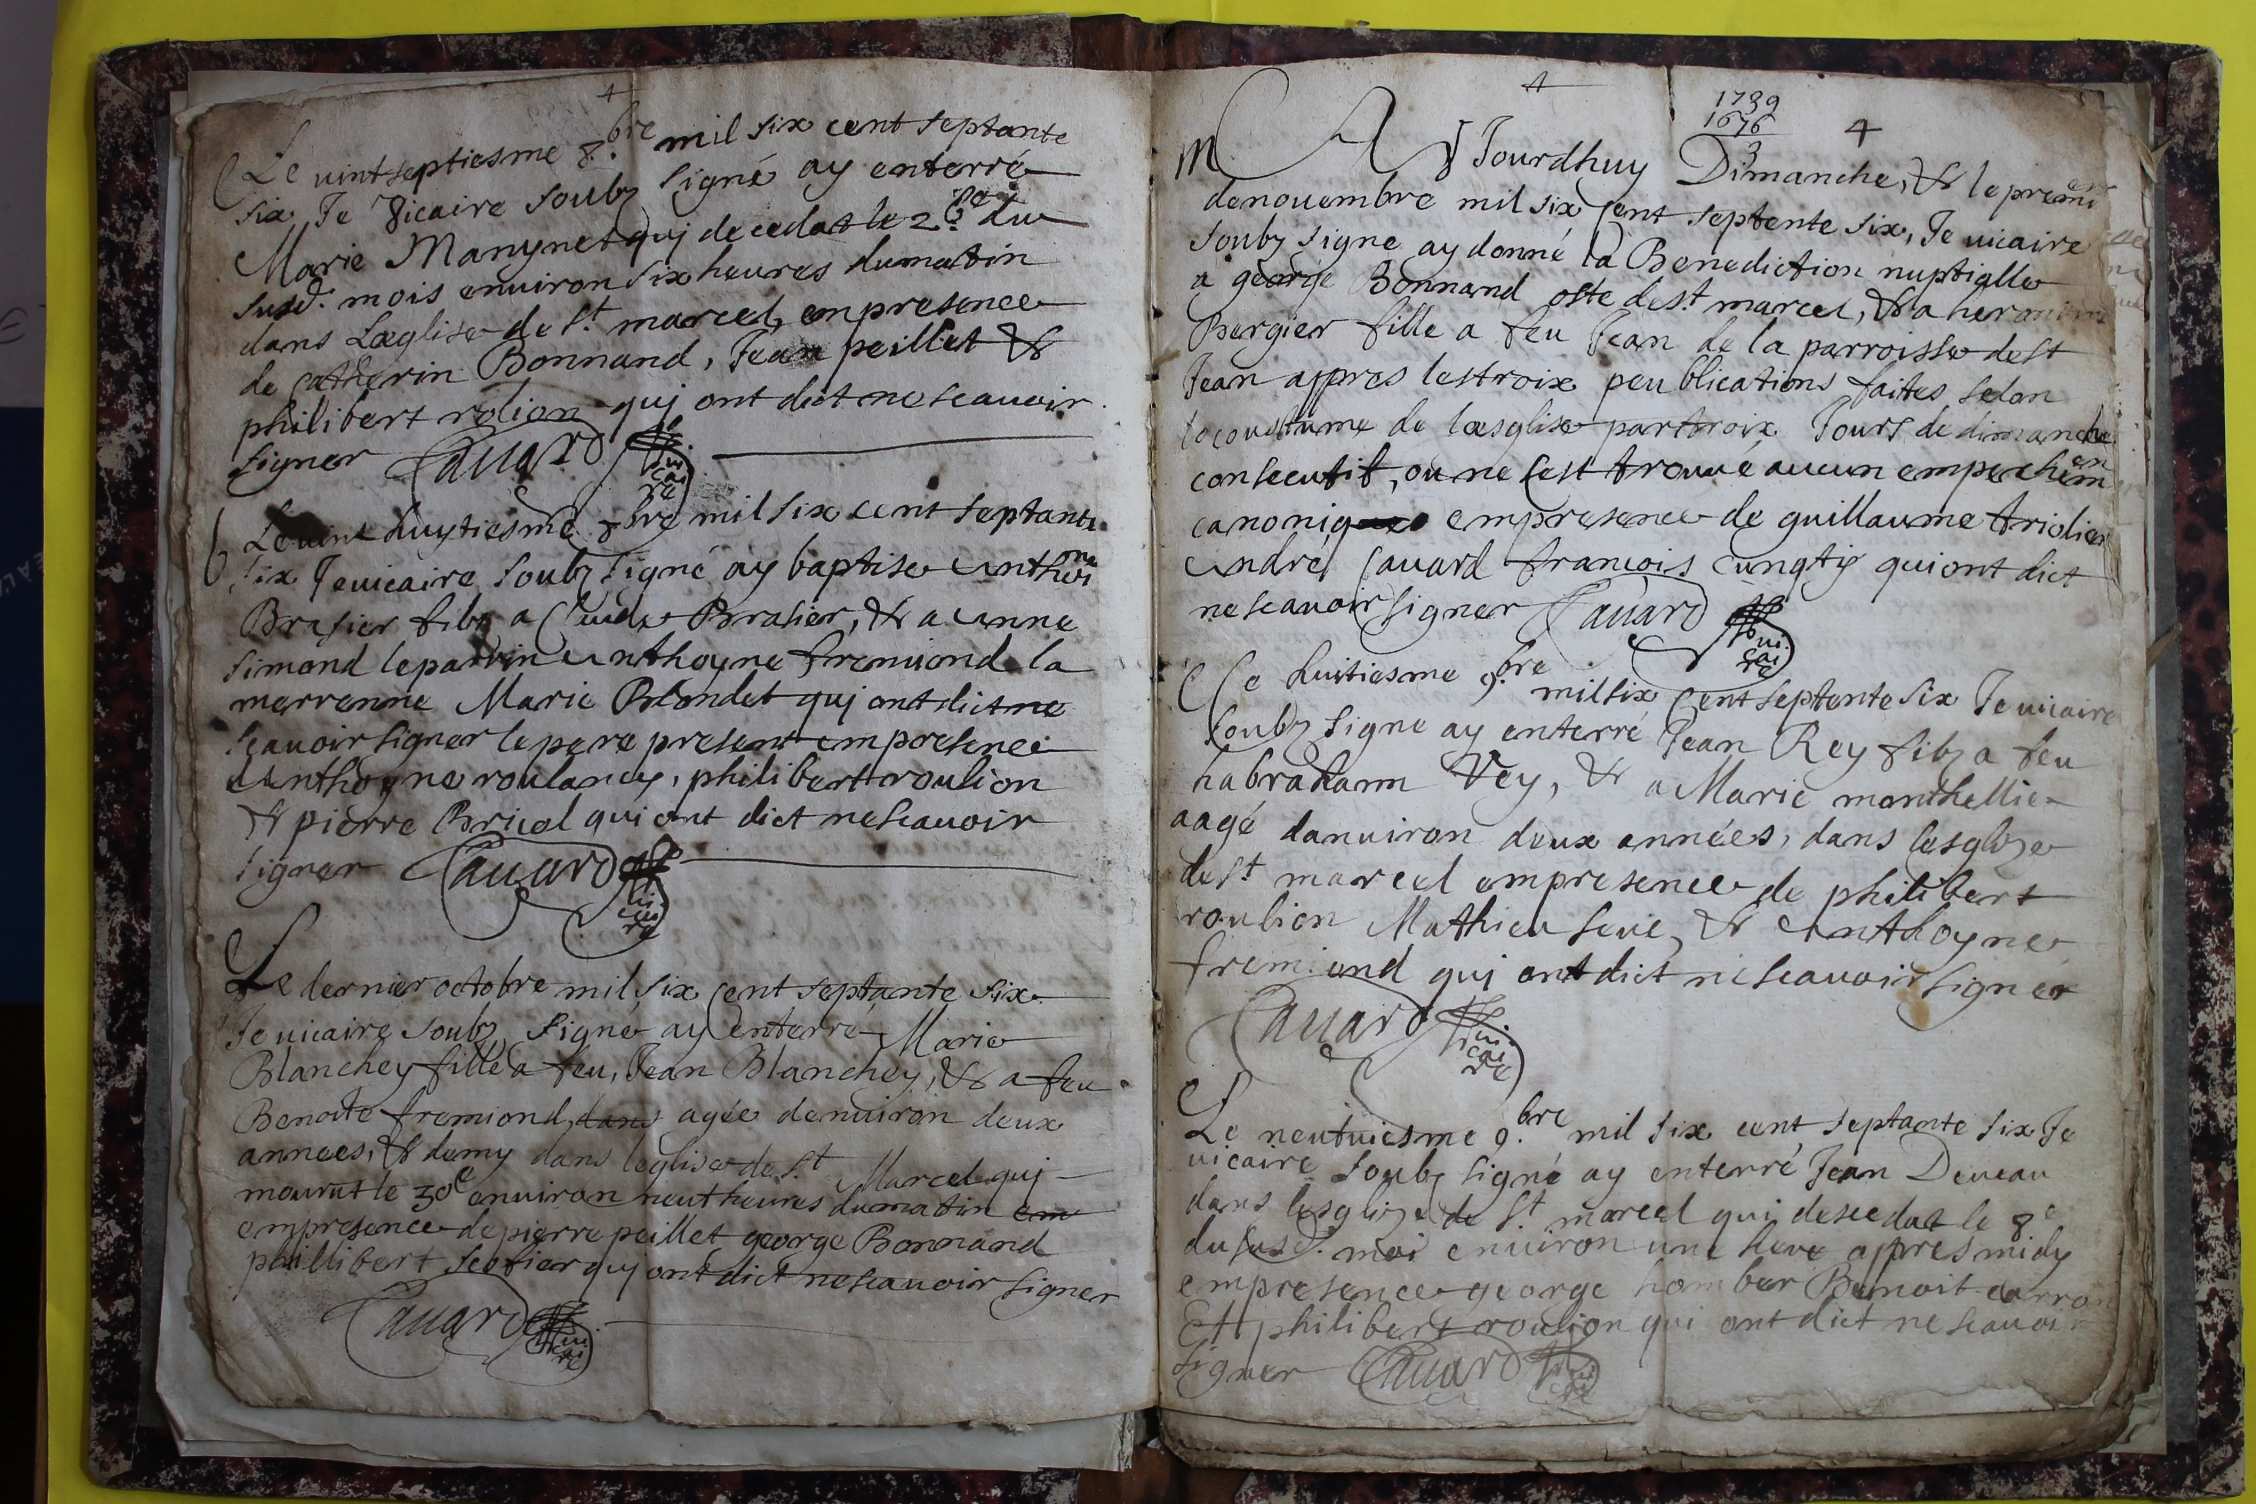 Le vintseptiesme 8.bre mil six cent septante
six Je vicaire soubz signé ay enterré
Marie Manynet quj decedat le 26.me du
susd. mois environ six heures du matin
dans Lœglise de st. marcel, en presence
de catherin Bonnand, Jean peillet &
philibert rolion quj ont dict ne scauoir
signer Cauard vicaire
b
Le vint huytiesme 8bre mil six cent septante
six Je vicaire soubz signé ay baptise Anthoine
Brasier filz a Claude Brasier, & a Anne
simond le parrin Anthoyne fremiond la
marrenne Marie Blondet quj ont dict ne
scauoir signer le pere present en presence
Anthoyne roulancy, philibert roulion
& pierre Bricol qui ont dict ne scauoir
signer Cauard vicaire
Le dernier octobre mil six cent septante six
Je vicaire soubz signé ay enterré Marie
Blanchey fille a feu, Jean Blanchey, & a feu
Benoite fremiond, dans agée denuiron deux
annees, & demy dans leglise de st. Marcel quj
mourut le 30e enuiron neuf heures du matin en
en presence de pierre peillet george Bonnand
phillibert sertier quj ont dict ne scauoir signer
Cauard vicaire
4
1739
1676
3
4
m Au Jourdhuy Dimanche, & le premier
de nouembre mil six cent septente six, Je vicaire
soubz signe ay donné la Benediction nuptialle
a george Bonnand oste de st. marcel, & a heronime
Bergier fille a feu Jean de la parroisse de st
Jean appres les troix peublications faites selon
la coustume de lœsglise par troix Jours de dimanche
consecutif, ou ne sest trouué aucun empechemen
canonique en presence de guillaume triolier
Andre Cauard francois cungtiy qui ont dict
ne scauoir signer Cauard vicaire
Le huitiesme 9.bre mil six cent septente six Je vicaire
soubz signe ay enterré Jean Rey filz a feu
habraham Rey, & a Marie monthellier
aagé danuiron deux années, dans lesglize
de st. marcel en presence de philibert
roulion Mathieu seue, & Anthoyne
fremiond quj ont dict ne scauoir signer
Cauard vicaire
Le neufuiesme 9.bre mil six cent septante six Je
vicaire soubz signé ay enterré Jean Deueau
dans lesglize de st. marcel qui decedat le 8e
du susd. moi enuiron une heure appres midy
en presence george homber Benoit carron
Et philibert roulion qui ont dict ne scauoir
signer Cauard vicaire